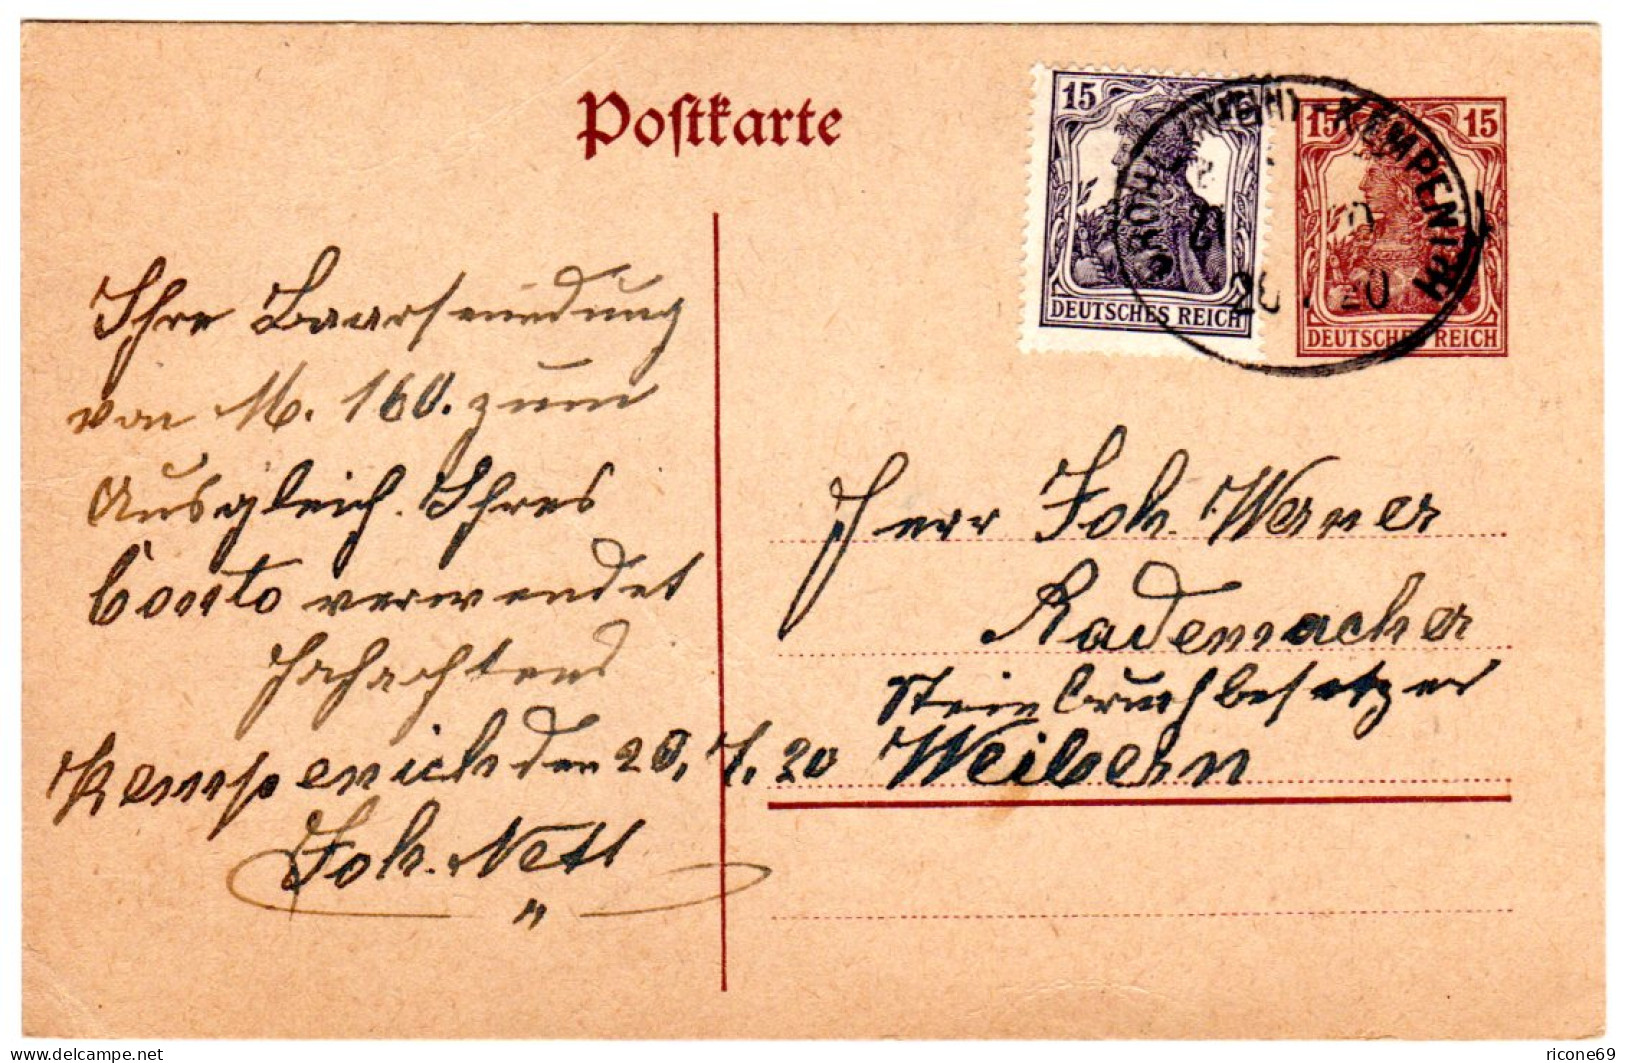 Postkarte
15
DEUTSCHES REICH
15 15
DEUTSCHES REICH
KEMPEN
20 20
Ihre Baarsendung
von M. 160. zum
Ausgleich Ihres
Conto verwendet
Kempenich den 20. 7. 20
Joh. Nett
Herr Joh. Werner
Rademacher
Steinbruchbesitzer
Weibern
delcampe.net
ricone69